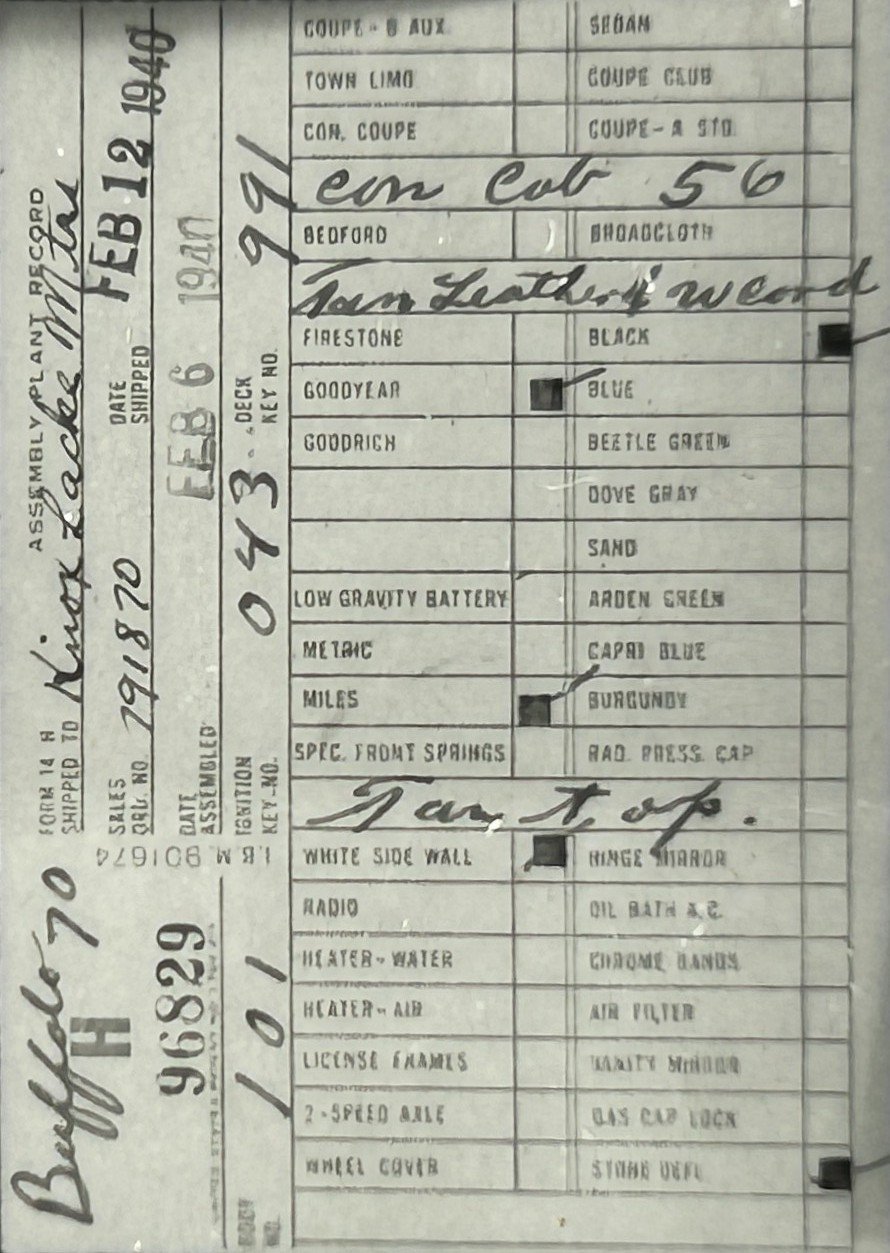 Buffalo 70
H
96829
BODY NO. 101
FORM 14 H ASSEMBLY PLANT RECORD
SHIPPED TO Knox Lacke Mtrs
SALES ORD. NO. 791870
DATE SHIPPED FEB 12 1940
DATE ASSEMBLED FEB 6 1940
IGNITION KEY NO. 043
DECK KEY NO. 991
I.B.M. 901674
COUPE - B AUX SEDAN
TOWN LIMO COUPE CLUB
CON. COUPE COUPE - A STD.
Con Cab 56
BEDFORD BROADCLOTH
Tan Leather & W Cord
FIRESTONE BLACK
GOODYEAR BLUE
GOODRICH BEETLE GREEN
DOVE GRAY
SAND
LOW GRAVITY BATTERY ARDEN GREEN
METRIC CAPRI BLUE
MILES BURGUNDY
SPEC. FRONT SPRINGS RAD. PRESS. CAP
Tan top.
WHITE SIDE WALL HINGE MIRROR
RADIO OIL BATH A.C.
HEATER - WATER CHROME BANDS
HEATER - AIR AIR FILTER
LICENSE FRAMES VANITY MIRROR
2 - SPEED AXLE GAS CAP LOCK
WHEEL COVER STONE DEFL